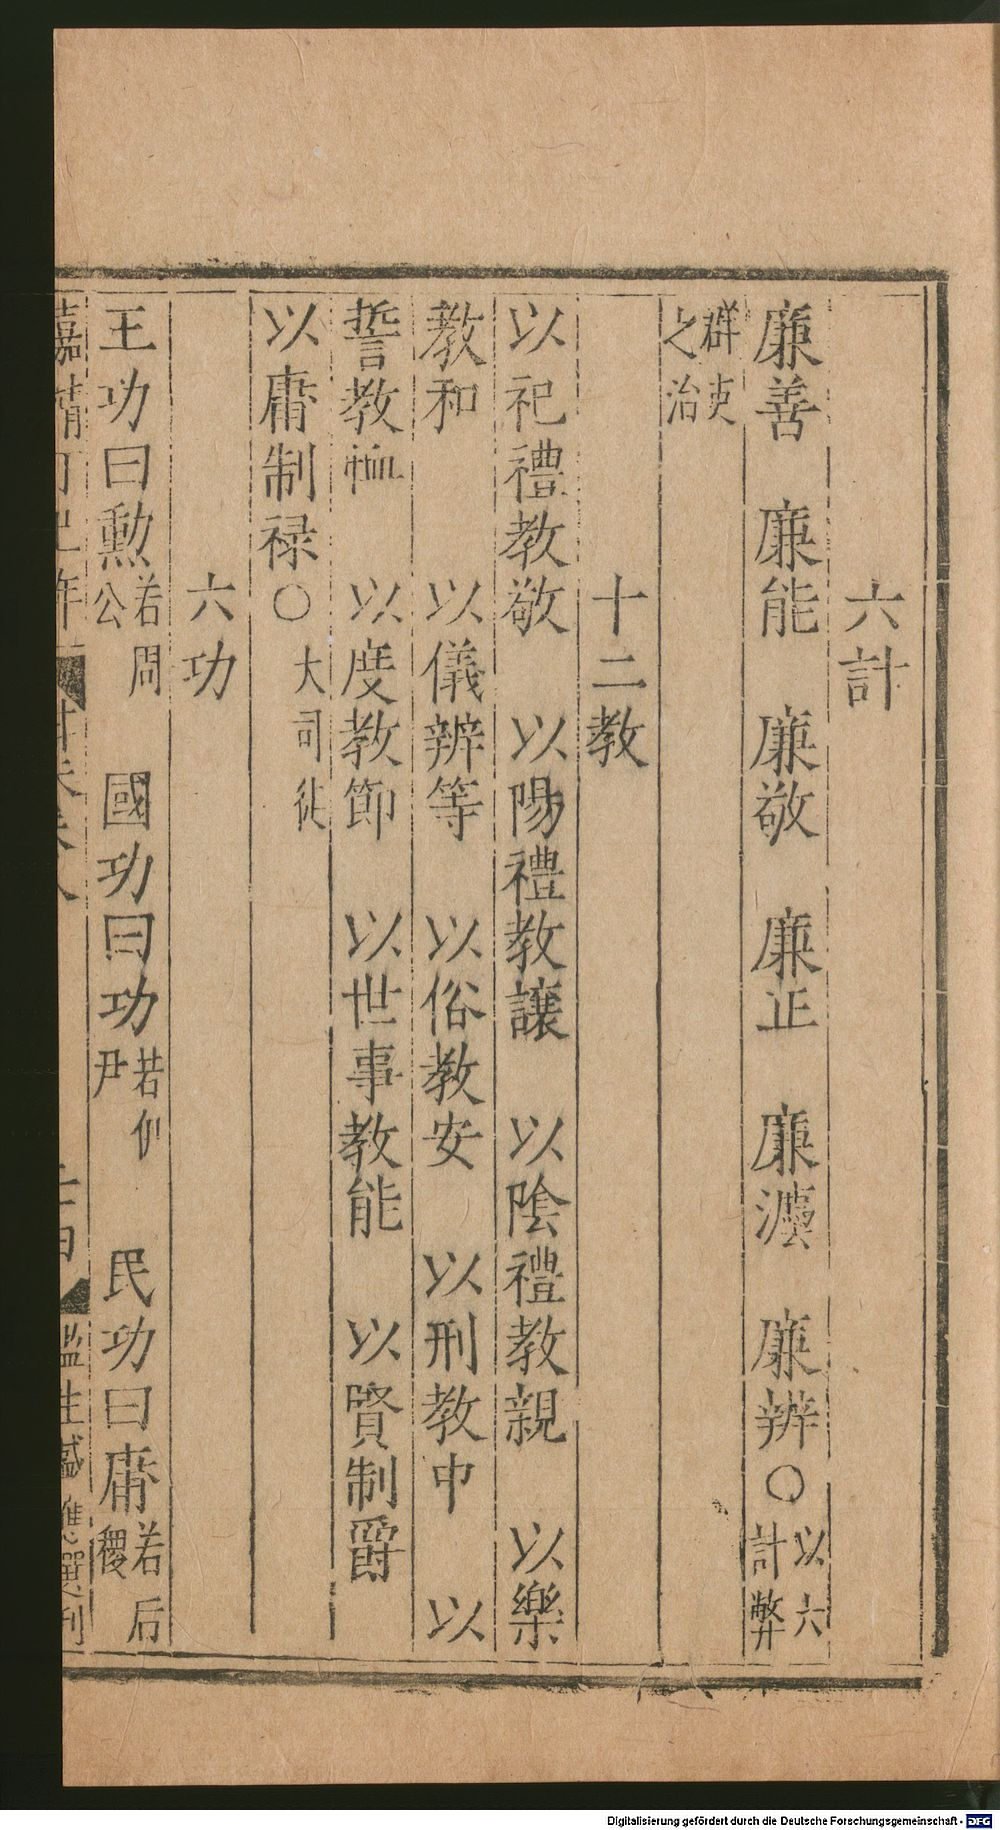 六計
廉善　廉能　廉敬　廉正　廉灋　廉辨○以六計弊
群吏之治
十二教
以祀禮教敬　以陽禮教讓　以陰禮教親　以樂
教和　以儀辨等　以俗教安　以刑教中　以
誓教恤　以度教節　以世事教能　以賢制爵
以庸制禄○大司徒
六功
王功曰勲若周公　國功曰功若伊尹　民功曰庸若后稷
嘉靖丁巳年
監生戚選刊
Digitalisierung gefördert durch die Deutsche Forschungsgemeinschaft - DFG